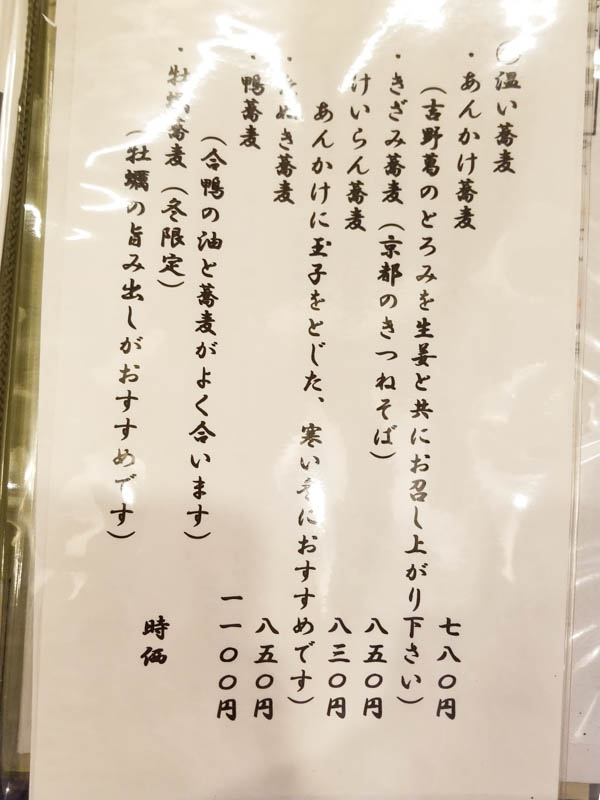 ○温い蕎麦
・あんかけ蕎麦 七八〇円
(吉野葛のとろみを生姜と共にお召し上がり下さい)
・きざみ蕎麦(京都のきつねそば) 八五〇円
けいらん蕎麦 八三〇円
あんかけに玉子をとじた、寒い冬におすすめです)
ぬき蕎麦 八五〇円
鴨蕎麦 一一〇〇円
(合鴨の油と蕎麦がよく合います)
・牡蠣蕎麦(冬限定) 時価
(牡蠣の旨み出しがおすすめです)